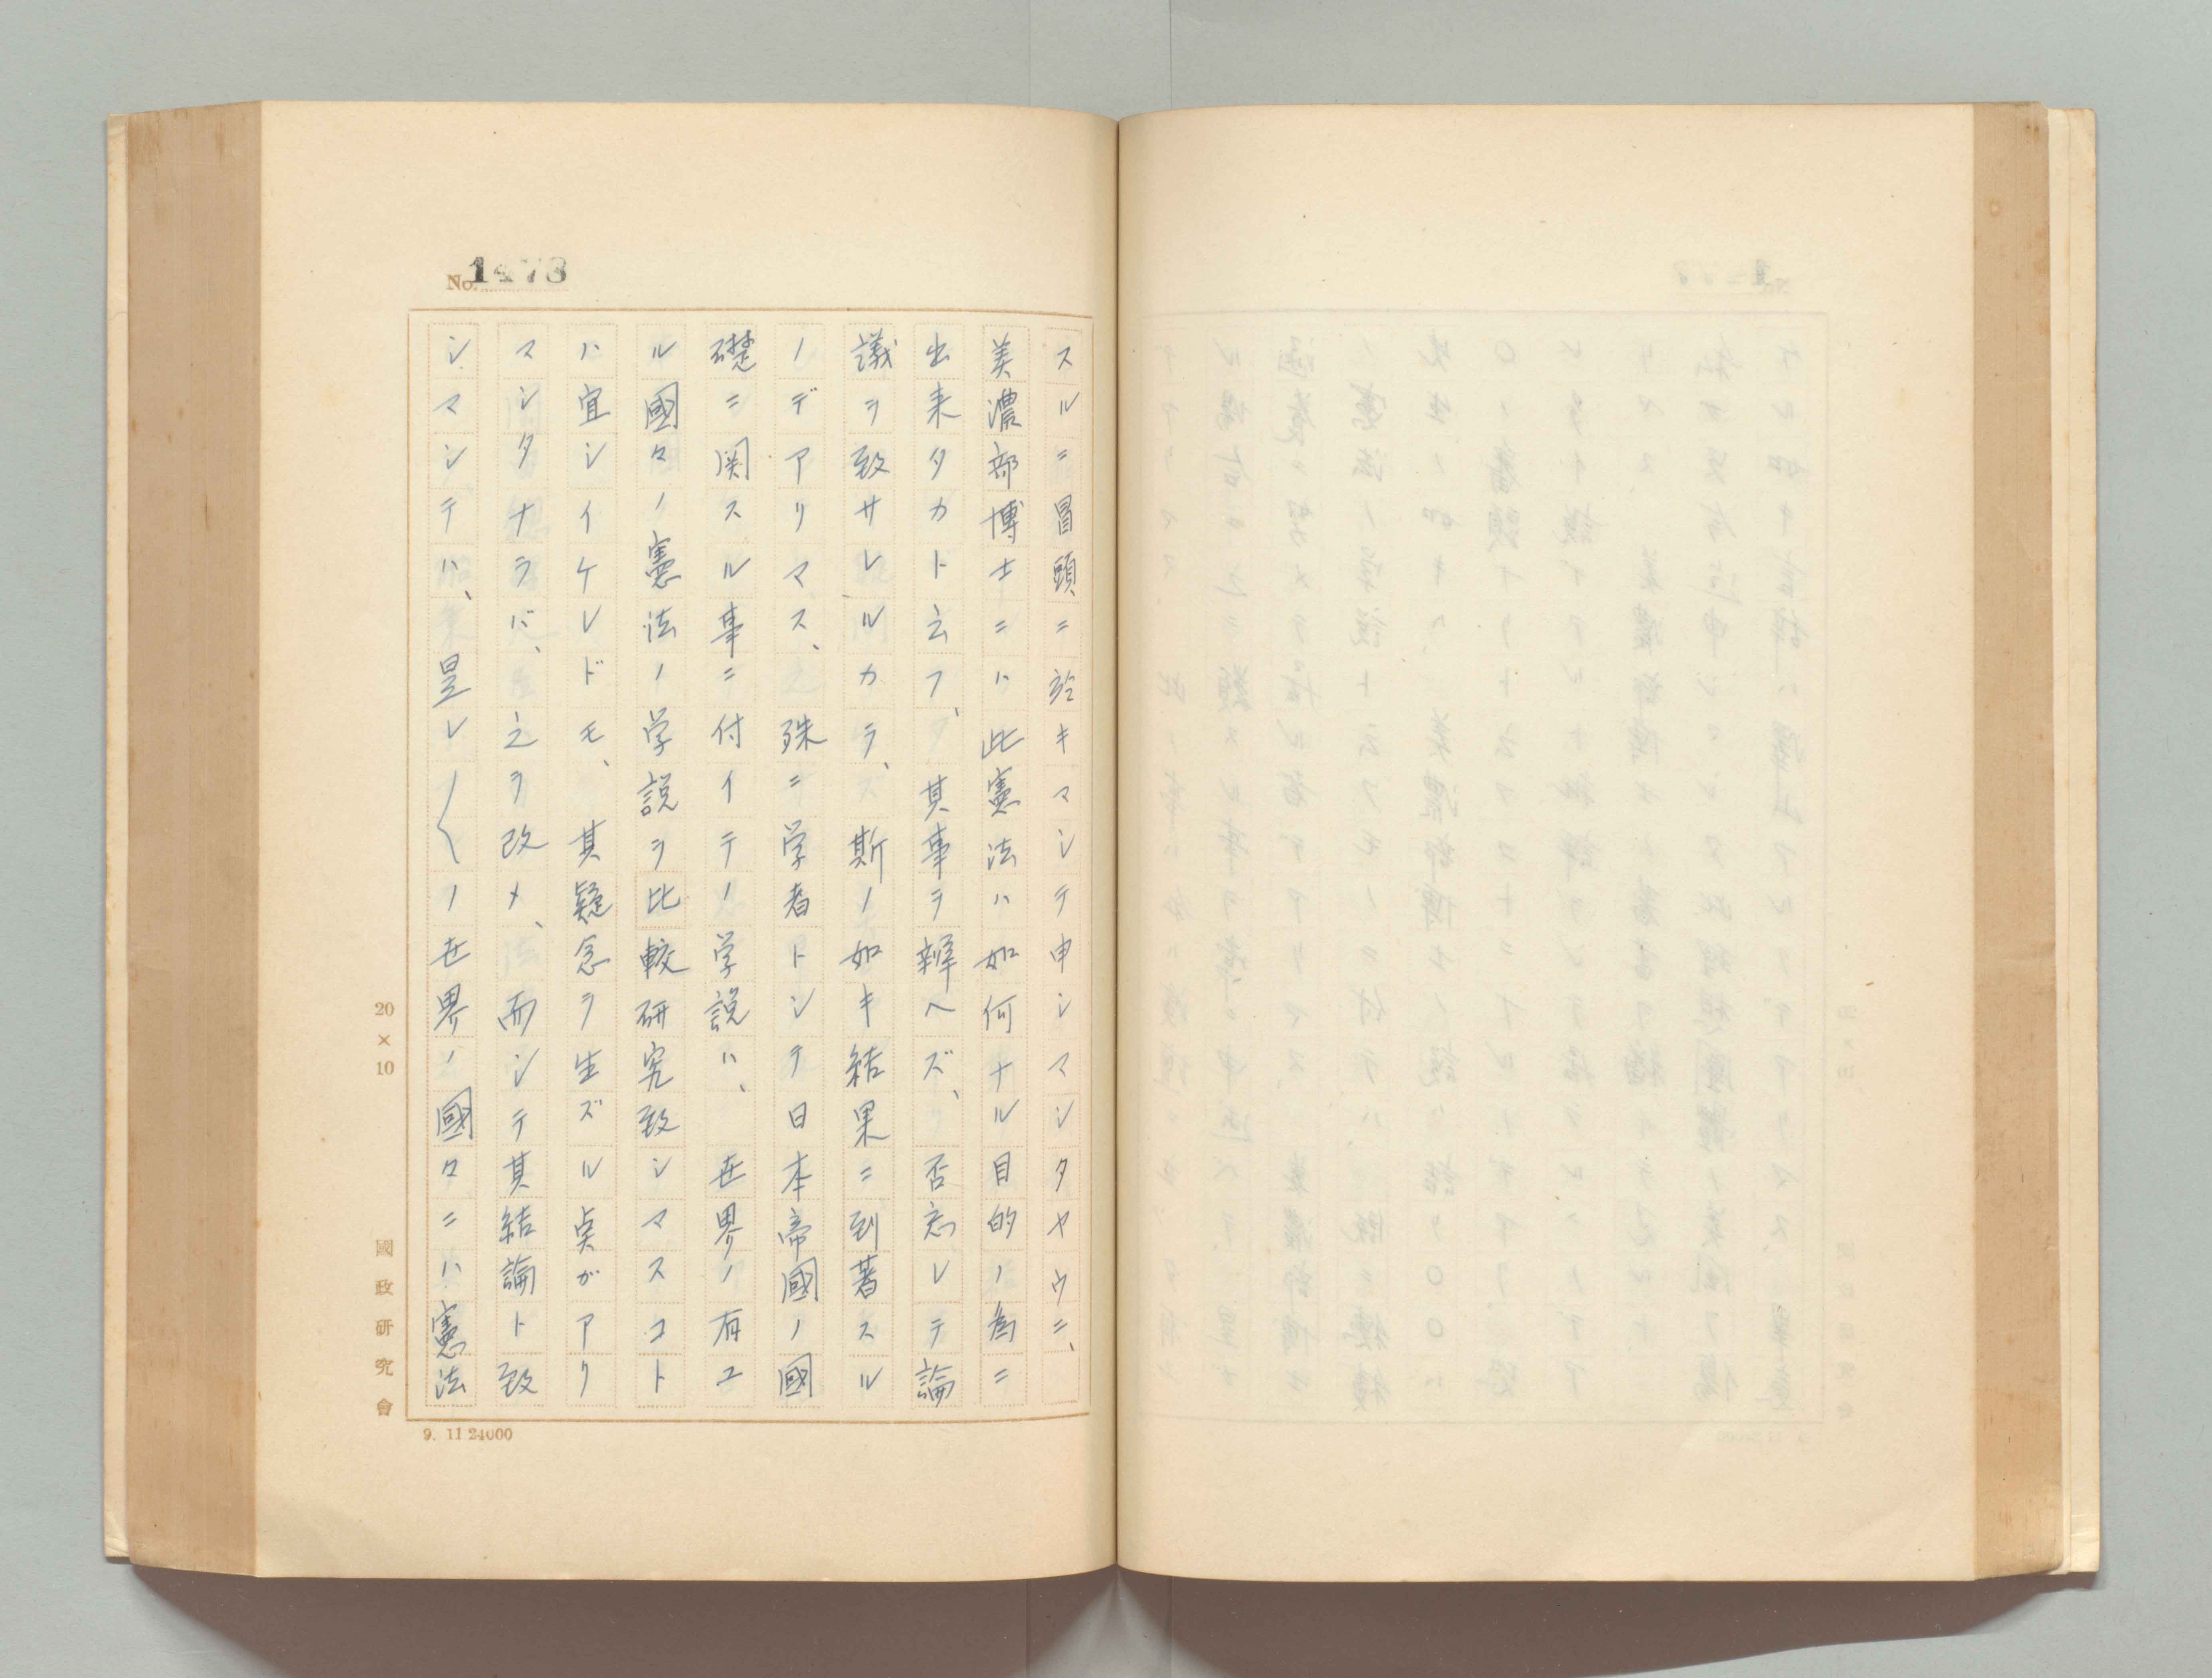 No. 1473
スルニ冒頭ニ於キマシテ申シマシタヤウニ、
美濃部博士ニハ此憲法ハ如何ナル目的ノ為ニ
出来タカト云フ、其事ヲ辨ヘズ、否忘レテ論
議ヲ致サレルカラ、斯ノ如キ結果ニ到著スル
ノデアリマス、殊ニ学者トシテ日本帝國ノ國
礎ニ関スル事ニ付イテノ学説ハ、世界ノ有ユ
ル國々ノ憲法ノ学説ヲ比較研究致シマスコト
ハ宜シイケレドモ、其疑念ヲ生ズル点ガアリ
マシタナラバ、之ヲ改メ、而シテ其結論ト致
シマシテハ、是レ〳〵ノ世界ノ國々ニハ憲法
20×10
國政研究會
9. 11 24000